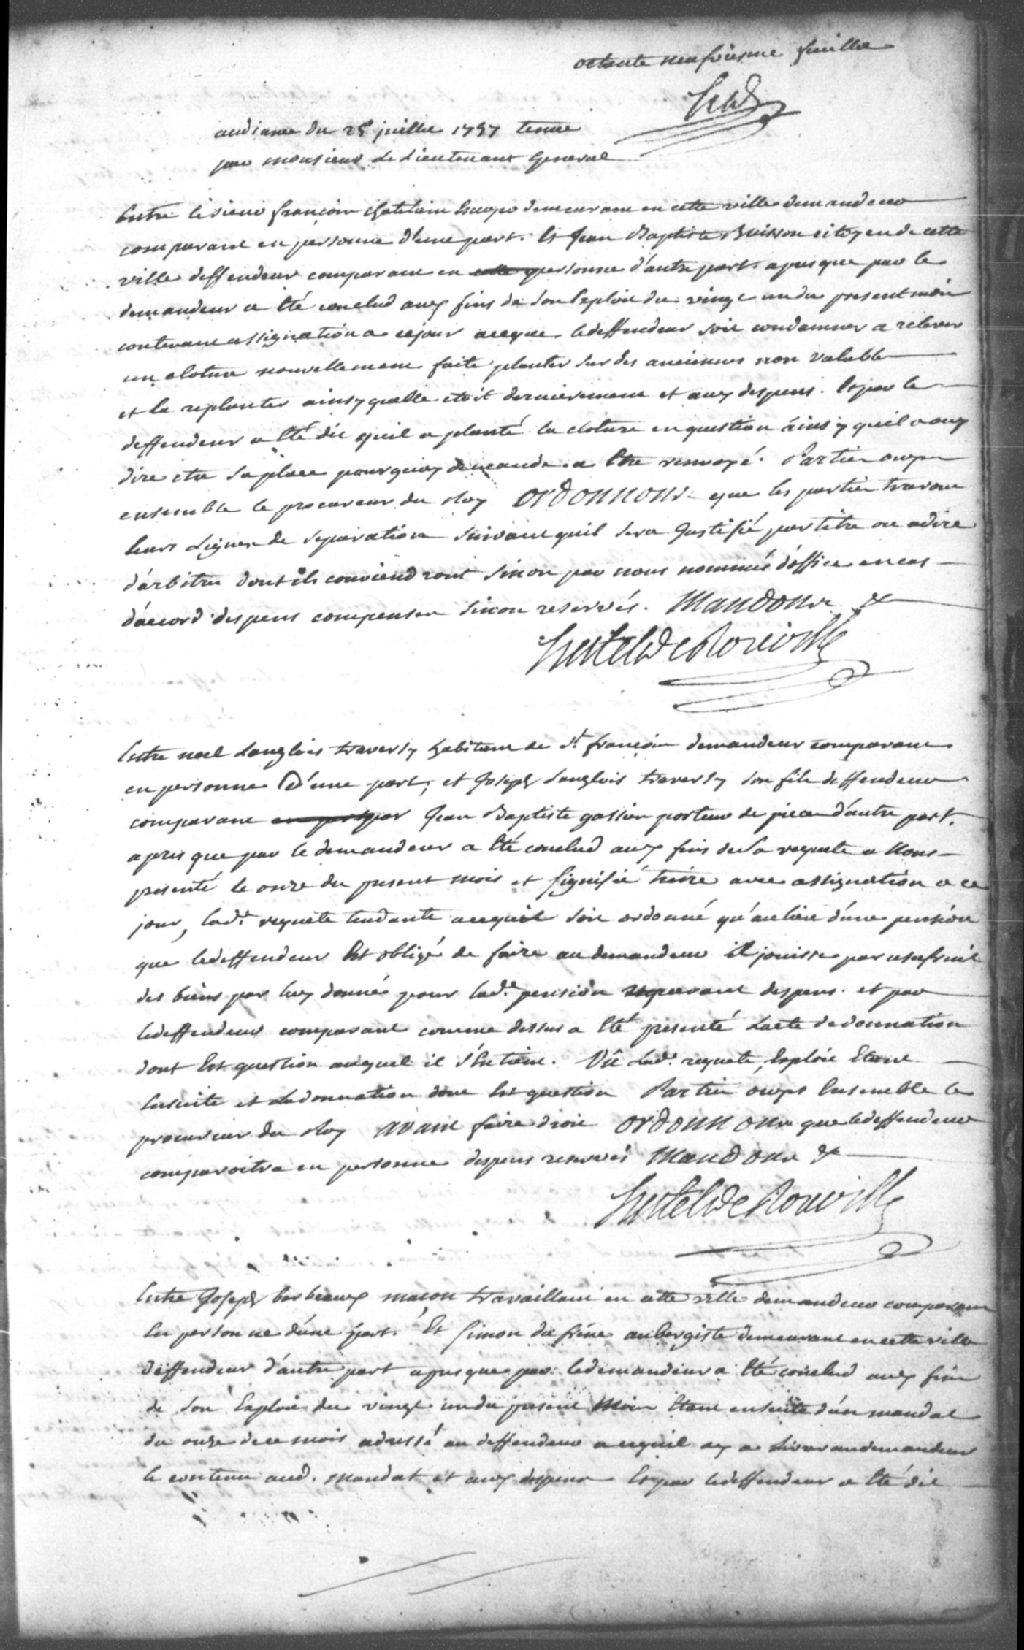 octante neufviesme feuillet
audiance du 25 juillet 1757 tenue
par monsieur Le Lieutenant General
Entre le sieur françois Chatelain demeurant en cette ville demandeur
comparant en personne d'une part. Et Jean Baptiste Buisson citoyen de cette
ville deffendeur comparant en personne d'autre part. apres que par le
demandeur a été conclud aux fins de son Exploit du vingt un du present mois
contenant assignation a cejour aceque ledeffendeur soit condamner a relever
un cloture nouvellement faite planter sur des anciennes non valable
et la replanter ainsy qu'elle etoit dernierement et aux despens. Et par le
deffendeur a été dit quil a planté la cloture en question ainsy quil a ouy
dire etre sa place pourquoy demande a etre renvoyé. Parties ouyes
ensemble le procureur du Roy ordonnons que les parties
leurs Lignes de separation suivant quil sera justifié par titre ou adire
d'arbitre dont ils conviendront sinon par nous nommés d'office en cas
d'accord despens compensés sinon reservés. Mandons &
Hertel de Rouville
Entre noel Langlois traversy habitant de St françois demandeur comparant
en personne D'une part, et Joseph Langlois traversy son fils deffendeur
comparant par Jean Baptiste gassien porteur de pieces d'autre part.
apres que par le demandeur a été conclud aux fins de sa requete a Nous
presenté le onze du present mois et signifié avec assignation a ce
jour, lade. requete tendante acequil soit ordonné qu'au lieu d'une pension
que ledeffendeur Est obligé de faire au demandeur il jouisse par usufruit
des biens par luy donnés pour lade. pension despens. et par
ledeffendeur comparant comme dessus a été presenté Lacte de donnation
dont Est question auquel il s'En tient. Vû lade. requete, Exploit Etant
Ensuite et La donnation dont Est question Parties ouyes Ensemble le
procureur du Roy avant faire droit ordonnons que ledeffendeur
comparoitra en personne despens reservés Mandons &
Hertel de Rouville
Entre Joseph barbeaux maçon travaillant en cette ville demandeur comparant
En personne d'une part. Et Simon dufréne aubergiste demeurant en cette ville
deffendeur d'autre part apres que par ledemandeur a été conclud aux fins
de son Exploit du vingt un du present Mois Etant ensuite d'un mandat
du onze de ce mois adressé au deffendeur acequil ay a Livrer audemandeur
le contenu aud. mandat et aux despens Et par ledeffendeur a été dit